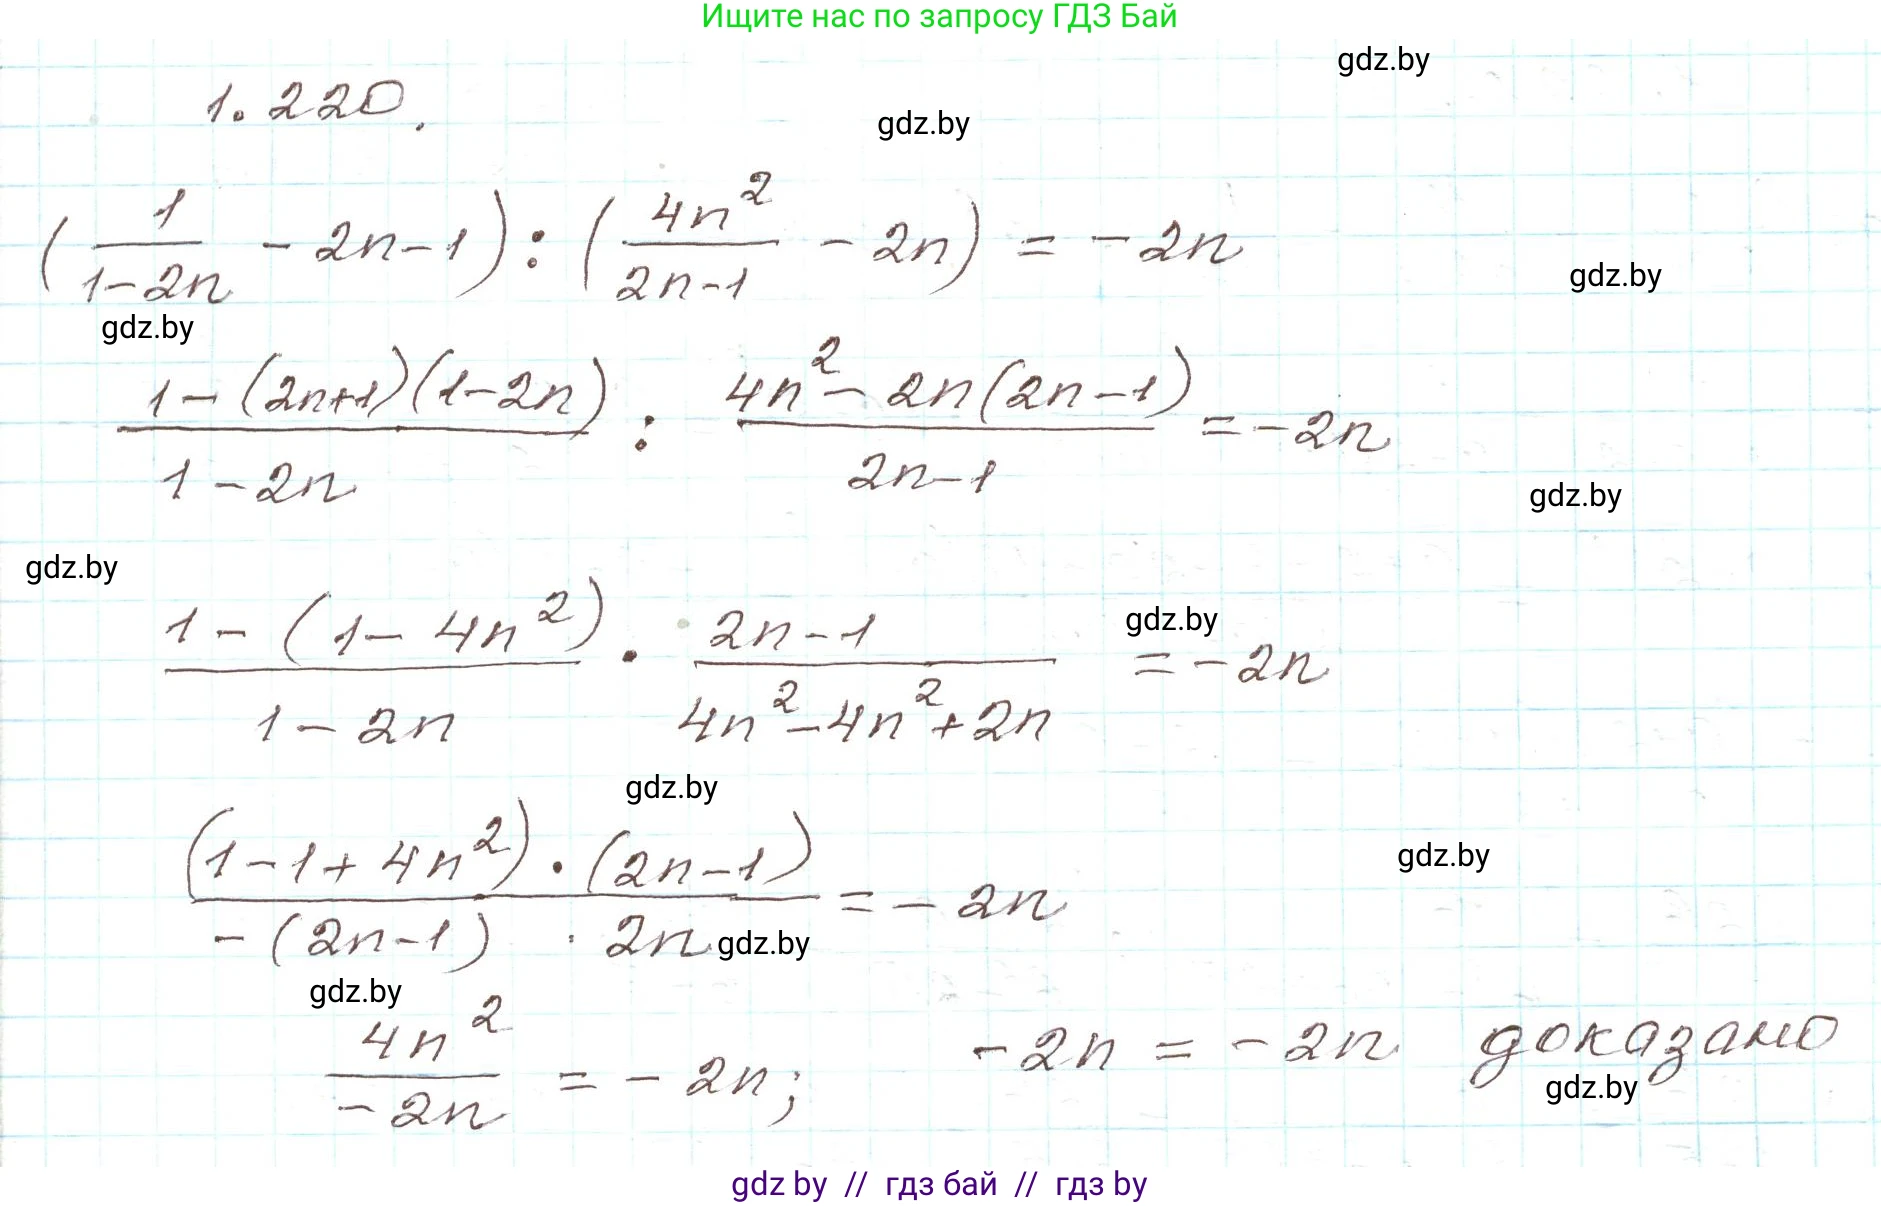 Ищите нас по запросу ГДЗ Бай
gdz.by
1.220.
gdz.by
(1/(1-2n) - 2n - 1) : (4n²/(2n-1) - 2n) = -2n
gdz.by
gdz.by
(1-(2n+1)(1-2n))/(1-2n) : (4n²-2n(2n-1))/(2n-1) = -2n
gdz.by
gdz.by
(1-(1-4n²))/(1-2n) · (2n-1)/(4n²-4n²+2n) = -2n
gdz.by
gdz.by
((1-1+4n²)·(2n-1))/(-(2n-1) · 2n) = -2n
gdz.by
gdz.by
gdz.by
4n²/(-2n) = -2n; -2n = -2n доказано
gdz.by
gdz by // гдз бай // гдз by